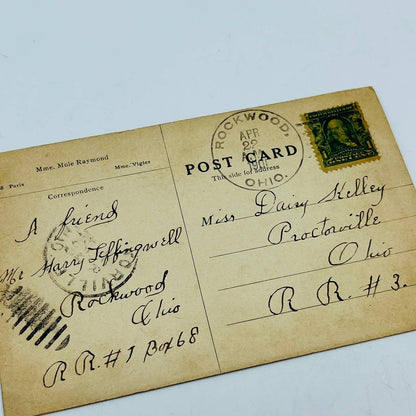 Mme. Mole Raymond
Paris
Mme. Vigier
Correspondence
A friend
Mr Harry Leffingwell
Rockwood
Ohio
R R. # 1 Box 68
ROCKWOOD,
APR
22
OHIO.
POST CARD
This side for address
Miss Daisy Kelley
Proctorville
Ohio
R R. # 3.